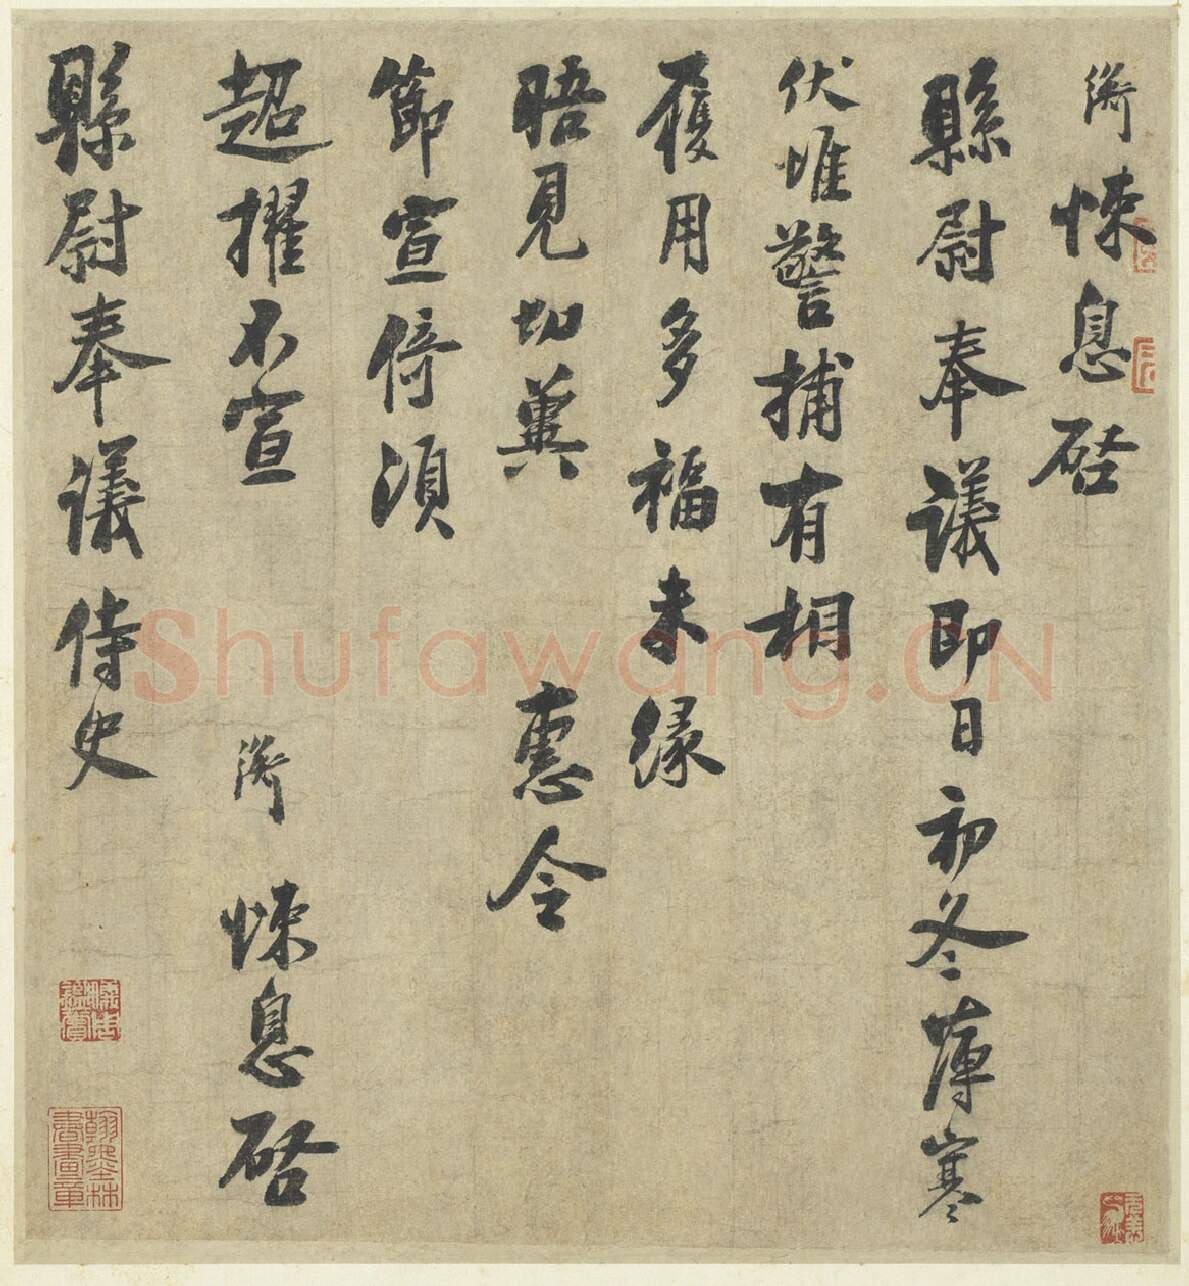 滂悚息啟
縣尉奉議即日初冬薄寒
伏惟警捕有相
履用多福未緣
晤見切冀 惠令
節宣倚須
超擢不宣 滂 悚息啟
縣尉奉議侍史
Shufawang.CN
翰墨林書畫章